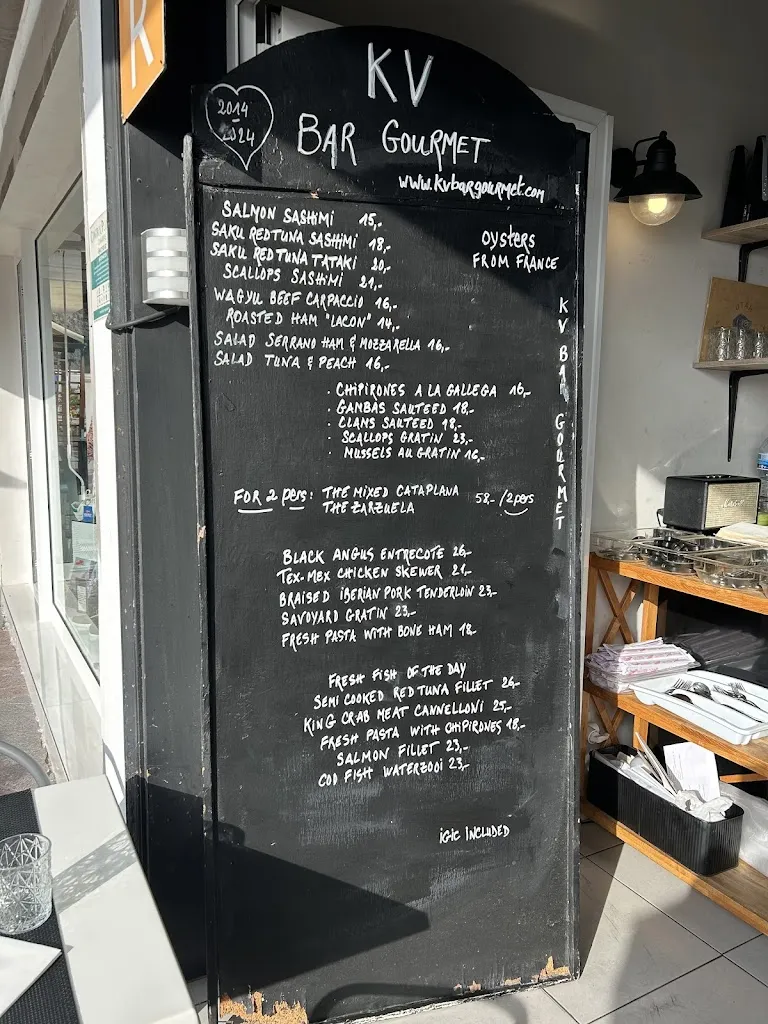 R
KV
2014
-
2024
BAR GOURMET
www.kvbargourmet.com
SALMON SASHIMI 15,-
SAKU RED TUNA SASHIMI 18,-
SAKU RED TUNA TATAKI 20,-
SCALLOPS SASHIMI 21,-
WAGYU BEEF CARPACCIO 16,-
ROASTED HAM "LACON" 14,-
SALAD SERRANO HAM & MOZZARELLA 16,-
SALAD TUNA & PEACH 16,-
OYSTERS
FROM FRANCE
KV BAR GOURMET
· CHIPIRONES A LA GALLEGA 16,-
· GAMBAS SAUTEED 18,-
· CLAMS SAUTEED 18,-
· SCALLOPS GRATIN 23,-
· MUSSELS AU GRATIN 16,-
FOR 2 PERS: THE MIXED CATAPLANA 58,-/2pers
THE ZARZUELA
BLACK ANGUS ENTRECOTE 26,-
TEX-MEX CHICKEN SKEWER 21,-
BRAISED IBERIAN PORK TENDERLOIN 23,-
SAVOYARD GRATIN 23,-
FRESH PASTA WITH BONE HAM 18,-
FRESH FISH OF THE DAY
SEMI COOKED RED TUNA FILLET 26,-
KING CRAB MEAT CANNELLONI 25,-
FRESH PASTA WITH CHIPIRONES 18,-
SALMON FILLET 23,-
COD FISH WATERZOOI 23,-
IGIC INCLUDED